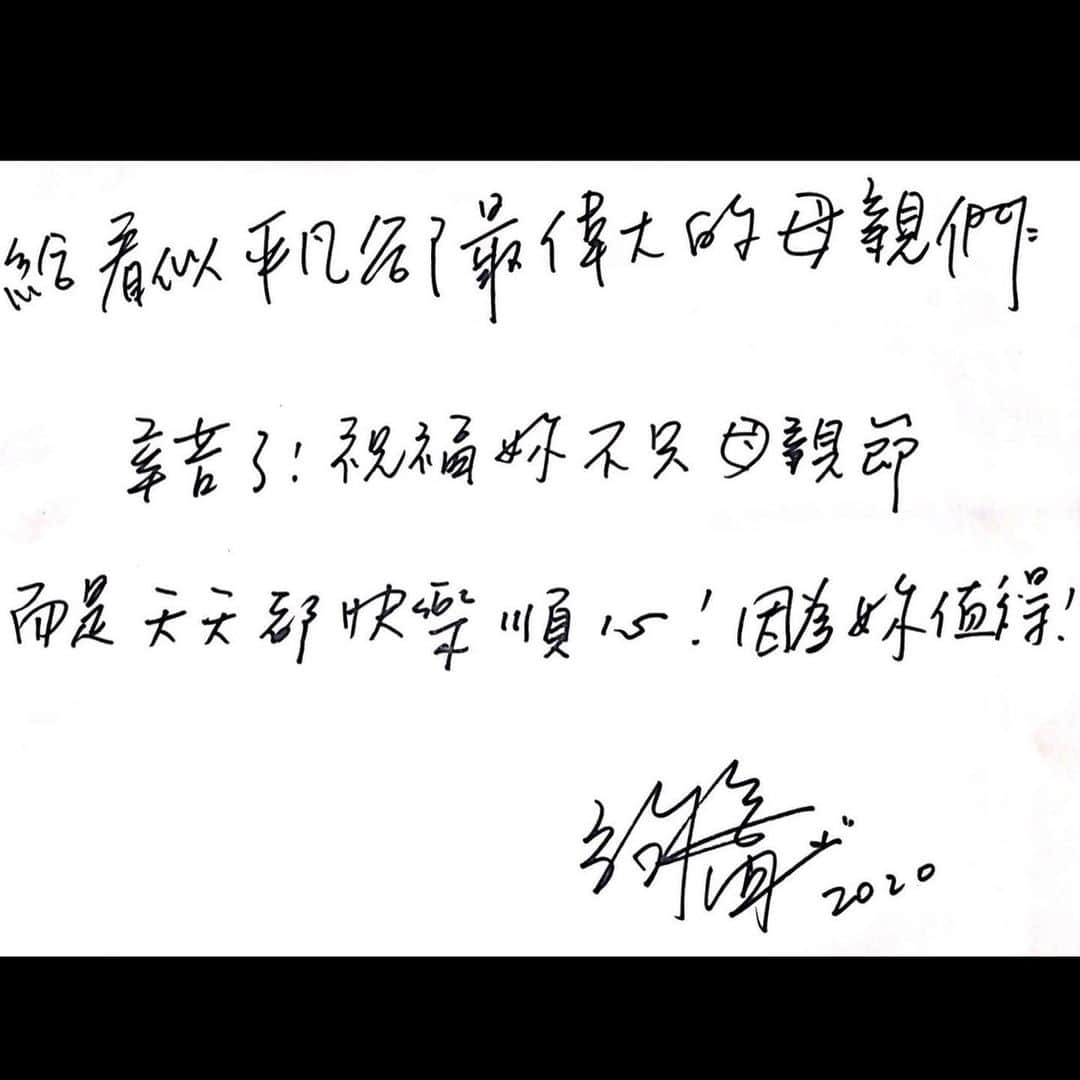 給看似平凡卻最偉大的母親們:
辛苦了!祝福妳不只母親節
而是天天都快樂順心!因為妳值得!
2020